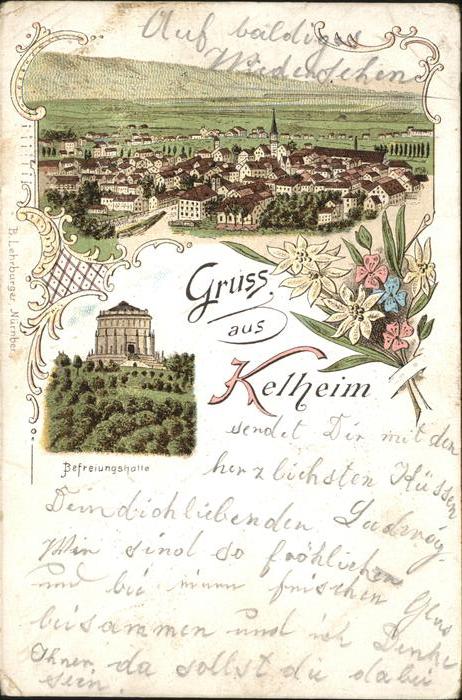 Auf baldiges
Wiedersehen
B. Lehrburger, Nürnberg
Gruss
aus
Kelheim
Befreiungshalle
sendet Dir mit den
herzlichsten Küssen
Dein dichliebenden Ludwig.
Wir sind so fröhlichen
und bei frischen
beisammen und ich Denke
da sollst du dabei
sein.